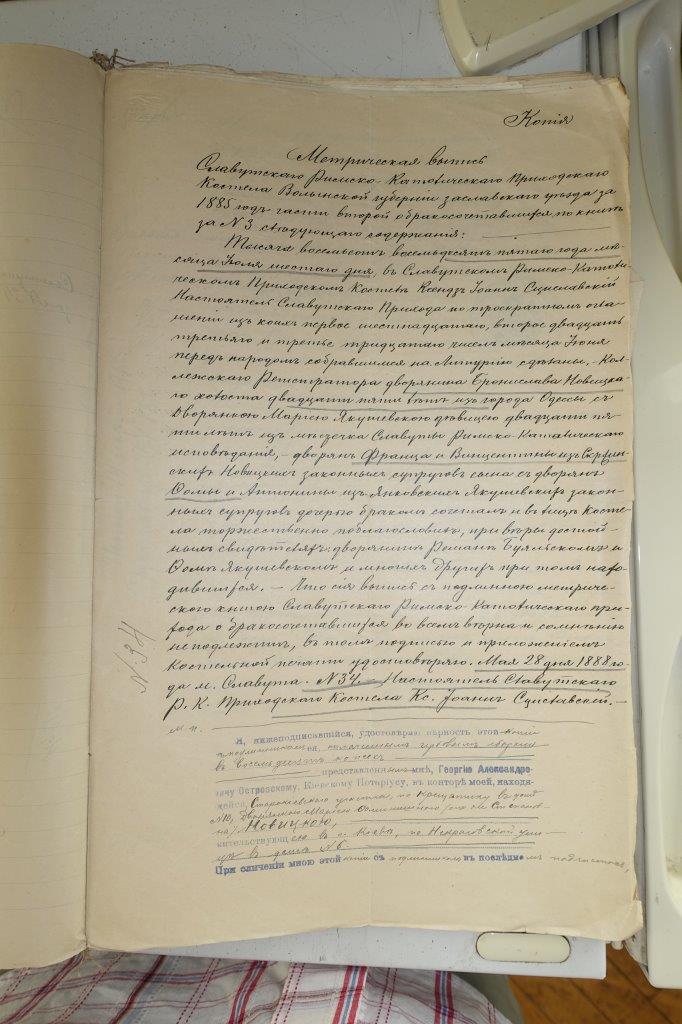 Копія
Метрическая выпись
Славутскаго Римско-Католическаго Приходскаго
Костела Волынской губерніи заславскаго уѣзда за
1885 годъ части второй о бракосочетавшихся, по книгѣ
за N 3 слѣдующаго содержанія:
Тысяча восемьсотъ восемьдесятъ пятаго года мѣ-
сяца Іюля шестаго дня, въ Славутскомъ Римско-Католи-
ческомъ Приходскомъ Костелѣ Ксендзъ Іоаннъ
Настоятель Славутскаго Прихода по троекратномъ огла-
шеніи изъ коихъ первое шестнадцатаго, второе двадцать
третьяго и третье тридцатаго чиселъ мѣсяца Іюня
передъ народомъ собравшимся на Литургію сдѣланы, - Кол-
лежскаго Регистратора дворянина Бронислава Новицка-
го холоста двадцати пяти лѣтъ изъ города Одессы съ
Дворянкою Маріею Якушевскою дѣвицею двадцати пя-
ти лѣтъ изъ мѣстечка Славуты Римско-Католическаго
исповѣданія, - дворянъ Франца и Винцентины изъ
Новицкихъ законныхъ супруговъ сына съ дворянъ
Фомы и Антонины изъ Янковскихъ Якушевскихъ закон-
ныхъ супруговъ дочерью бракомъ сочеталъ и въ лицѣ Косте-
ла торжественно поблагословилъ, при вѣры достой-
ныхъ свидѣтеляхъ: дворянинѣ Романѣ и
Фомѣ Якушевскомъ и многихъ другихъ при томъ нахо-
дившихся. - Что сія выпись съ подлинною метриче-
скою книгою Славутскаго Римско-Католическаго при-
хода о бракосочетавшихся во всемъ вѣрна и сомнѣнію
не подлежитъ, въ томъ подписью и приложеніемъ
Костельной печати удостовѣряю. Мая 28 дня 1888 го-
да м. Славута. N 34. Настоятель Славутскаго
Р. К. Приходскаго Костела Кс. Іоаннъ
М. п.
Я, нижеподписавшійся, удостовѣряю вѣрность этой копіи
съ подлинникомъ ея, гербовымъ сборомъ
въ Восемьдесятъ копѣекъ
представленнымъ мнѣ, Георгію Александро-
вичу Островскому, Кіевскому Нотаріусу, въ конторѣ моей, находя-
щейся, Старокіевскаго участка, по Крещатику въ домѣ
N 10, Дворянкою Маріею
Новицкою,
жительствующею въ г. Кіевѣ, по Некрасовской ули-
цѣ въ домѣ N 6.
При сличеніи мною этой копіи съ подлинникомъ въ послѣднемъ подчистокъ,
N. 34